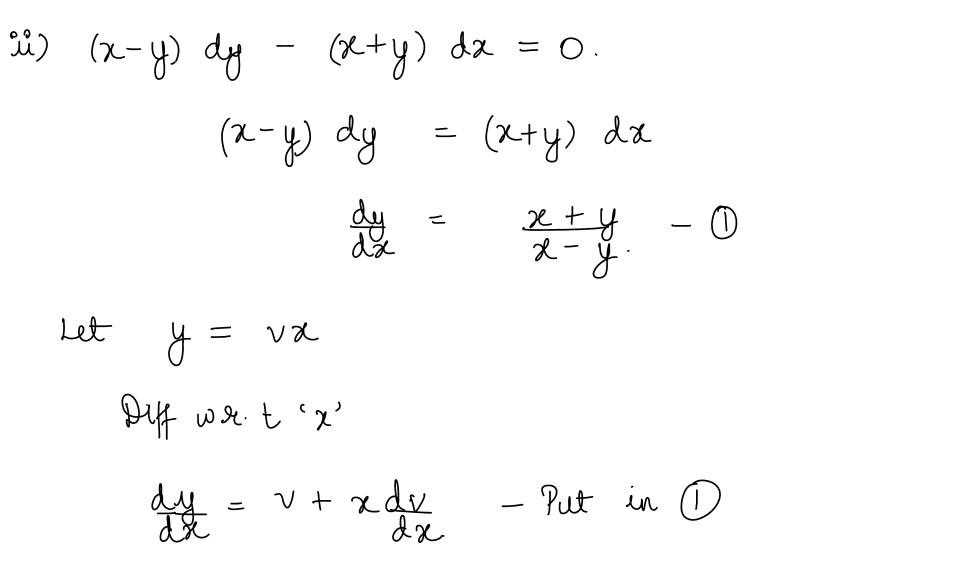 ii) (x-y) dy - (x+y) dx = 0.
(x-y) dy = (x+y) dx
dy/dx = x+y/x-y. - ①
Let y = vx
Diff w.r.t 'x'
dy/dx = v + x dv/dx - Put in ①